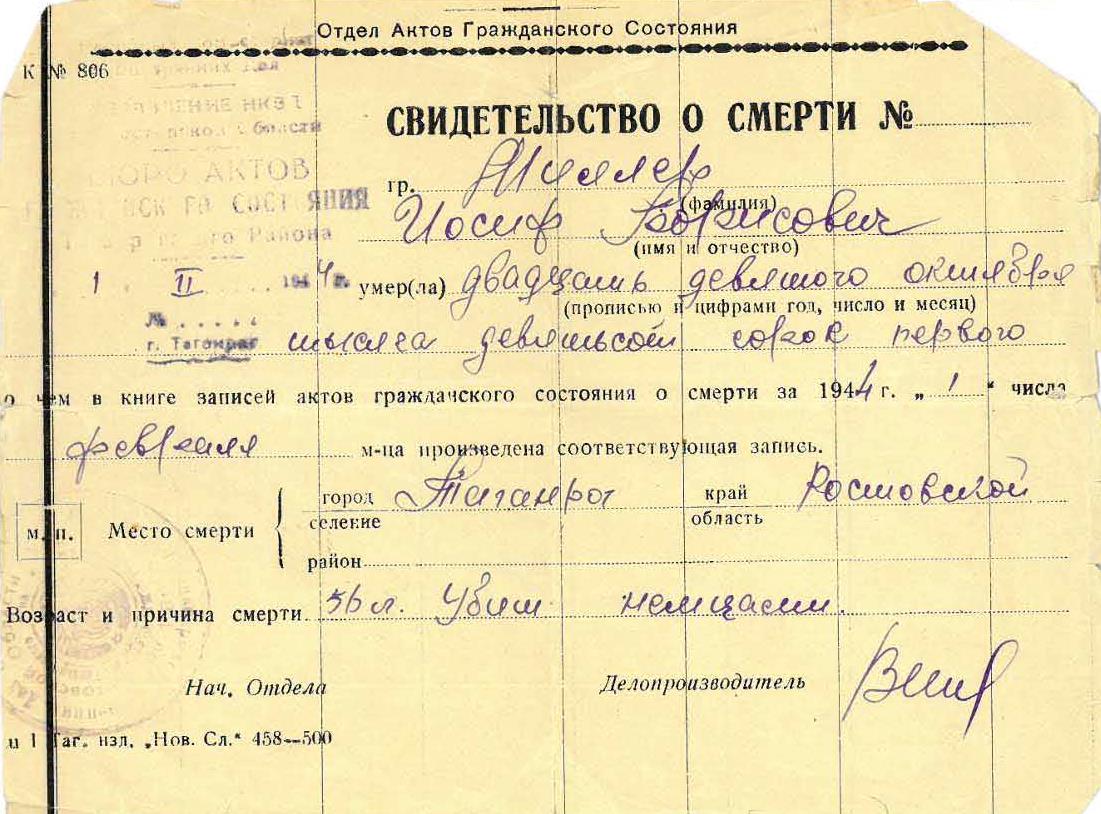 Отдел Актов Гражданского Состояния
К № 806
НКВД
области
БЮРО АКТОВ
СОСТОЯНИЯ
Района
СВИДЕТЕЛЬСТВО О СМЕРТИ №
гр. Миллер
(фамилия)
Иосиф Борисович
(имя и отчество)
1 II 1944 г. умер(ла) двадцать девятого октября
(прописью и цифрами год, число и месяц)
№
г. Таганрог тысяча девятьсот сорок первого
о чем в книге записей актов гражданского состояния о смерти за 1944 г. „ 1 “ числа
февраля м-ца произведена соответствующая запись.
город Таганрог край Ростовской
селение область
м. п. Место смерти
район
Возраст и причина смерти 56 л. Убит немцами.
Нач. Отдела Делопроизводитель
Таг. изд. „Нов. Сл.“ 458—500